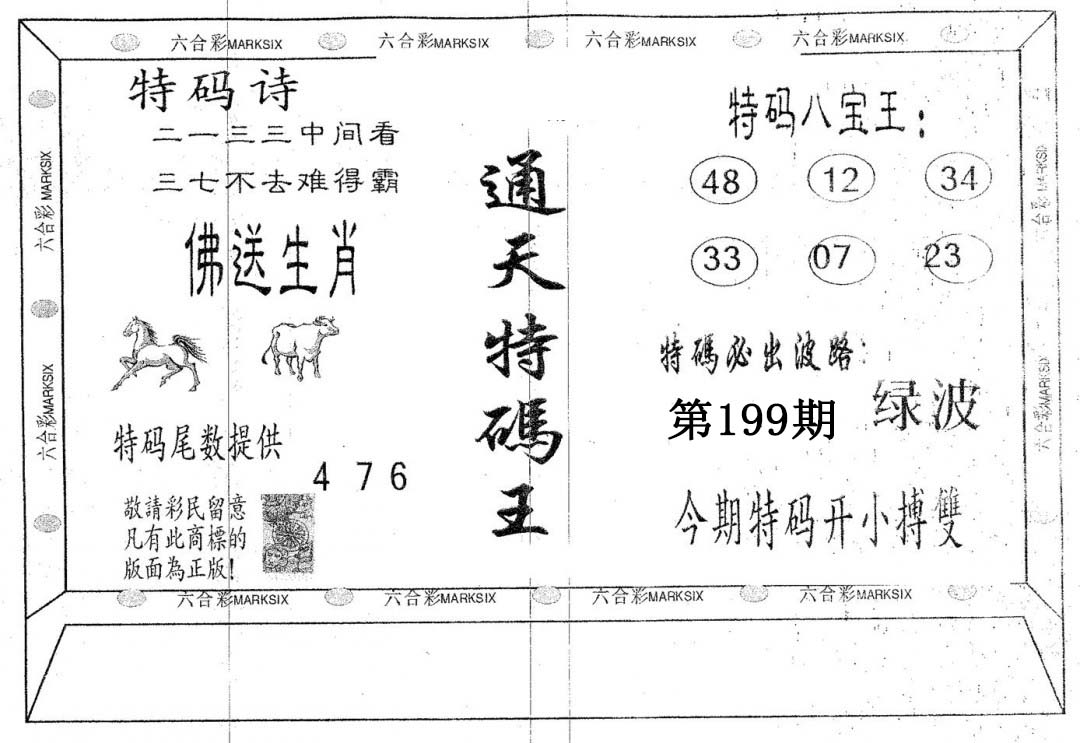 六合彩MARKSIX 六合彩MARKSIX 六合彩MARKSIX 六合彩MARKSIX
特码诗
二一三三中间看
三七不去难得霸
佛送生肖
特码尾数提供
4 7 6
敬請彩民留意
凡有此商標的
版面為正版!
通天特碼王
特码八宝王:
48 12 34
33 07 23
特碼必出波路:
绿波
第199期
今期特码开小搏雙
六合彩MARKSIX
六合彩MARKSIX
六合彩MARKSIX
六合彩MARKSIX
六合彩MARKSIX 六合彩MARKSIX 六合彩MARKSIX 六合彩MARKSIX